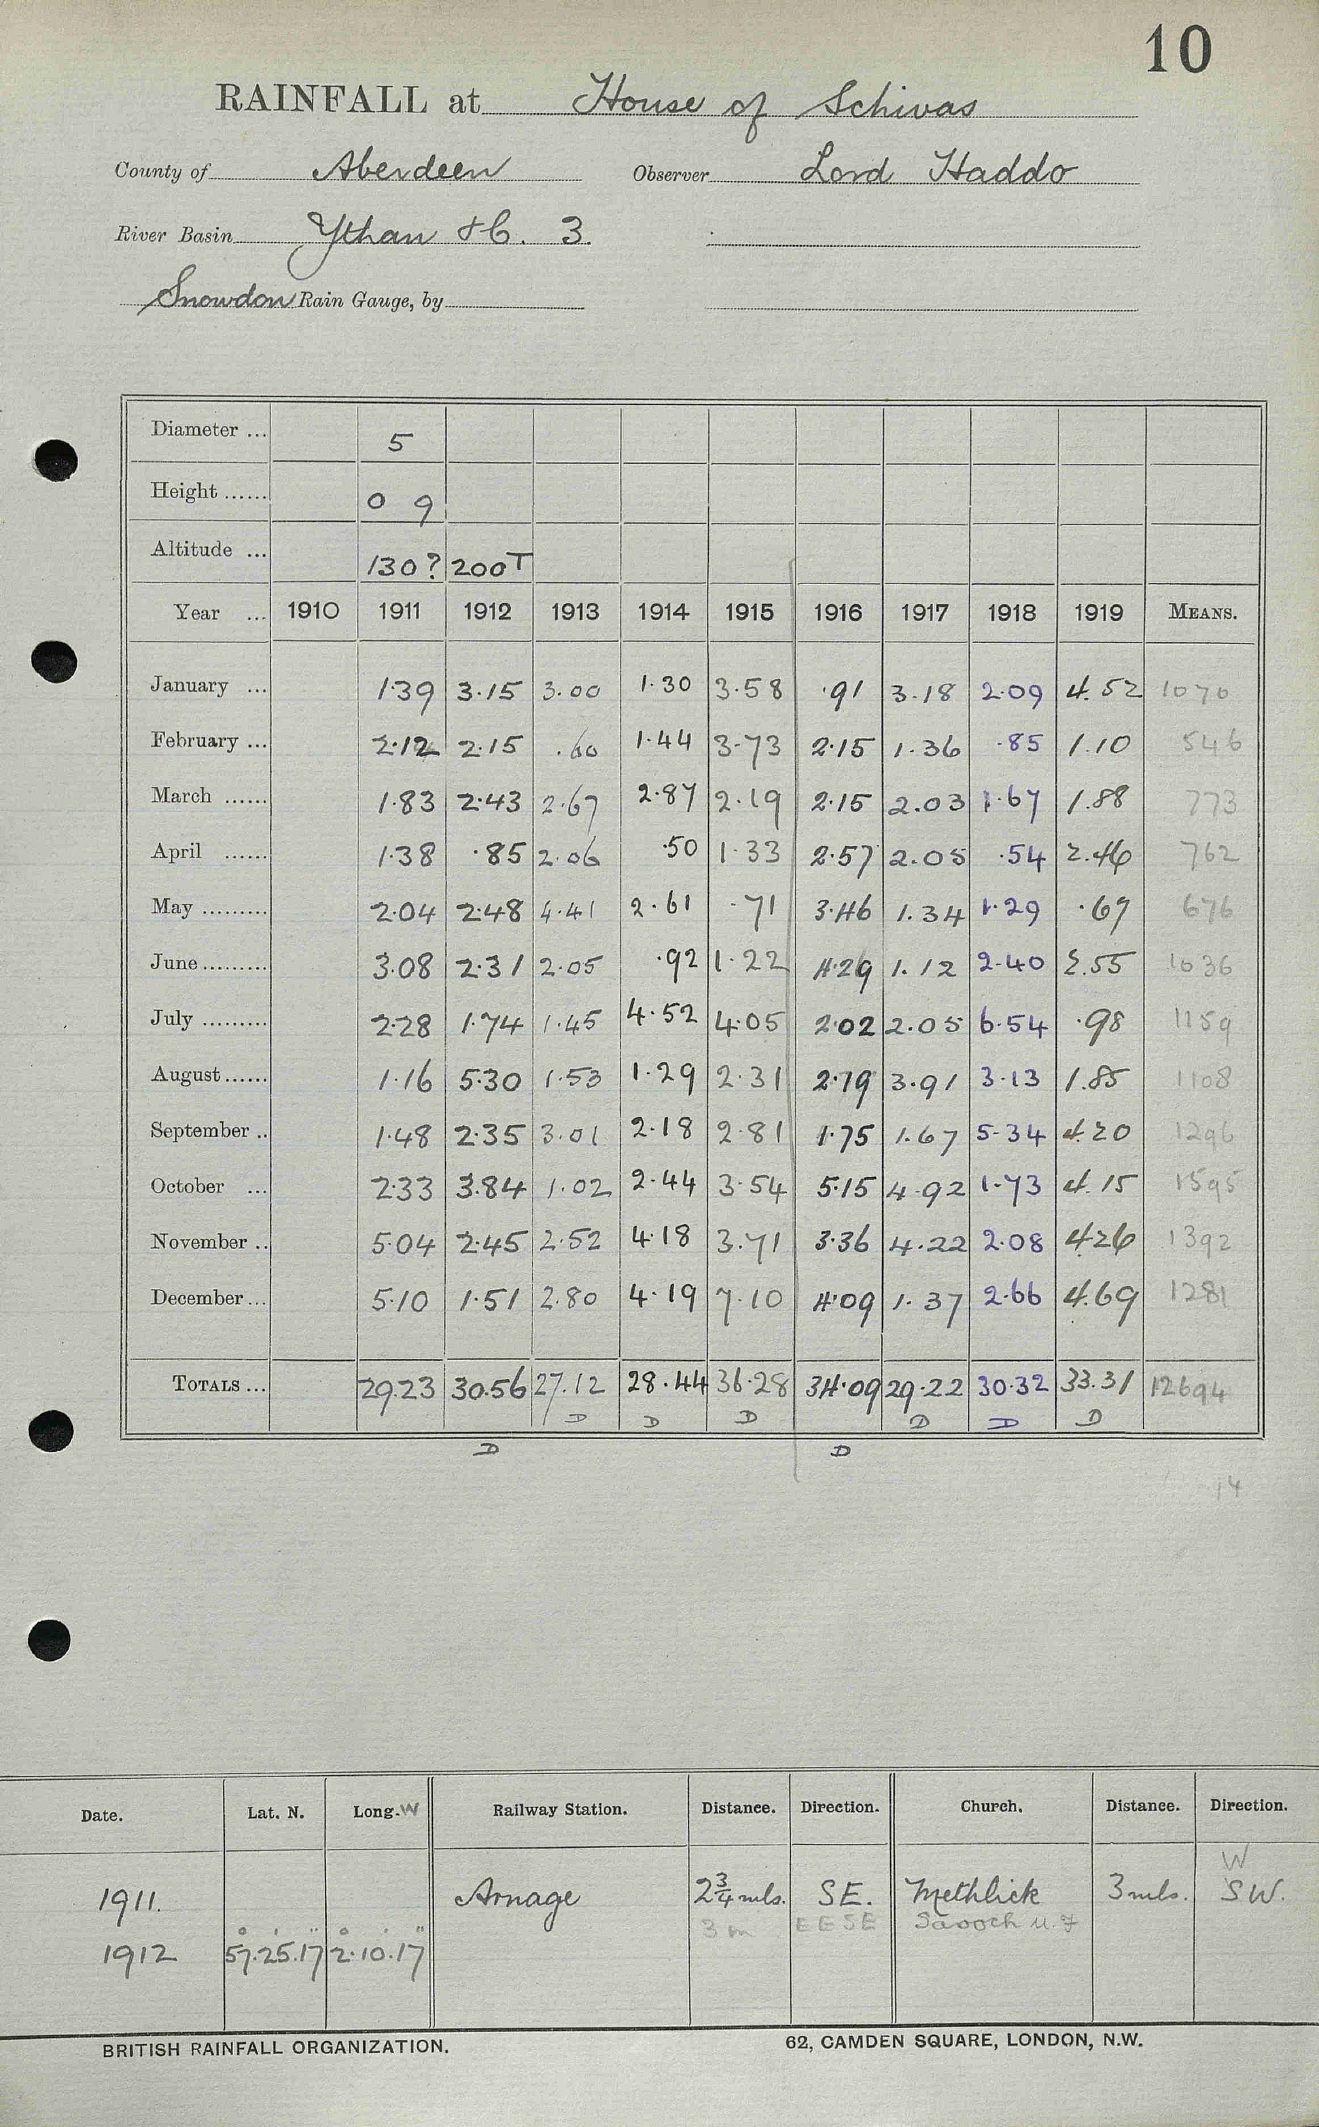 10
RAINFALL at House of Schivas
County of Aberdeen Observer Lord Haddo
River Basin Ythan &C. 3.
Snowdon Rain Gauge, by
Diameter ... 5
Height ...... 0 9
Altitude ... 130? 200T
Year ... 1910 1911 1912 1913 1914 1915 1916 1917 1918 1919 MEANS.
January ... 1.39 3.15 3.00 1.30 3.58 .91 3.18 2.09 4.52 1070
February ... 2.12 2.15 .60 1.44 3.73 2.15 1.36 .85 1.10 546
March ...... 1.83 2.43 2.67 2.87 2.19 2.15 2.03 1.67 1.88 773
April ...... 1.38 .85 2.06 .50 1.33 2.57 2.05 .54 2.46 762
May ......... 2.04 2.48 4.41 2.61 .71 3.46 1.34 1.29 .67 676
June ......... 3.08 2.31 2.05 .92 1.22 4.29 1.12 2.40 2.55 1036
July ......... 2.28 1.74 1.45 4.52 4.05 2.02 2.05 6.54 .98 1159
August ...... 1.16 5.30 1.53 1.29 2.31 2.79 3.91 3.13 1.85 1108
September .. 1.48 2.35 3.01 2.18 2.81 1.75 1.67 5.34 4.20 1296
October ... 2.33 3.84 1.02 2.44 3.54 5.15 4.92 1.73 4.15 1595
November .. 5.04 2.45 2.52 4.18 3.71 3.36 4.22 2.08 4.26 1392
December ... 5.10 1.51 2.80 4.19 7.10 4.09 1.37 2.66 4.69 1281
TOTALS ... 29.23 30.56 27.12 28.44 36.28 34.09 29.22 30.32 33.31 12694
D D D D D D
D D
14
Date. Lat. N. Long. W Railway Station. Distance. Direction. Church. Distance. Direction.
W
1911. Arnage 2¾ mls. SE. Methlick 3 mls. SW.
3 m E ESE
1912 57°.25'.17" 2°.10'.17"
BRITISH RAINFALL ORGANIZATION. 62, CAMDEN SQUARE, LONDON, N.W.